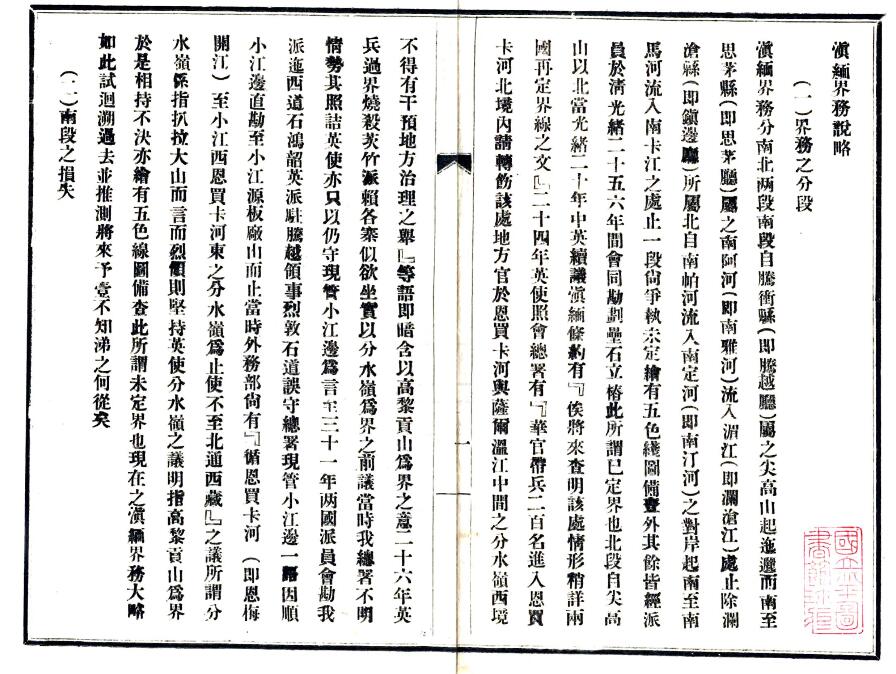 滇緬界務說略
（一）界務之分段
滇緬界務分南北兩段南段自騰衝縣（即騰越廳）屬之尖高山起迤邐而南至
思茅縣（即思茅廳）屬之南阿河（即南雅河）流入湄江（即瀾滄江）處止除瀾
滄縣（即鎮邊廳）所屬北自南帕河流入南定河（即南汀河）之對岸起南至南
馬河流入南卡江之處止一段尙爭執未定繪有五色綫圖備查外其餘皆經派
員於淸光緖二十五六年間會同勘劃壘石立樁此所謂已定界也北段自尖高
山以北當光緖二十年中英續議滇緬條約有『俟將來查明該處情形稍詳兩
國再定界線之文』二十四年英使照會總署有『華官帶兵二百名進入恩買
卡河北境內請轉飭該處地方官於恩買卡河與薩爾溫江中間之分水嶺西境
不得有干預地方治理之舉』等語即暗含以高黎貢山爲界之意二十六年英
兵過界燒殺茨竹派賴各寨似欲坐實以分水嶺爲界之前議當時我總署不明
情勢其照詰英使亦只以仍守現管小江邊爲言至三十一年兩國派員會勘我
派迤西道石鴻韶英派駐騰越領事烈敦石道誤守總署現管小江邊一語因順
小江邊直勘至小江源板廠山而止當時外務部尙有『循恩買卡河（即恩梅
開江）至小江西恩買卡河東之分水嶺爲止使不至北通西藏』之議所謂分
水嶺係指扒拉大山而言而烈領則堅持英使分水嶺之議明指高黎貢山爲界
於是相持不決亦繪有五色線圖備查此所謂未定界也現在之滇緬界務大略
如此試迴溯過去並推測將來予壹不知涕之何從矣
（二）南段之損失
一